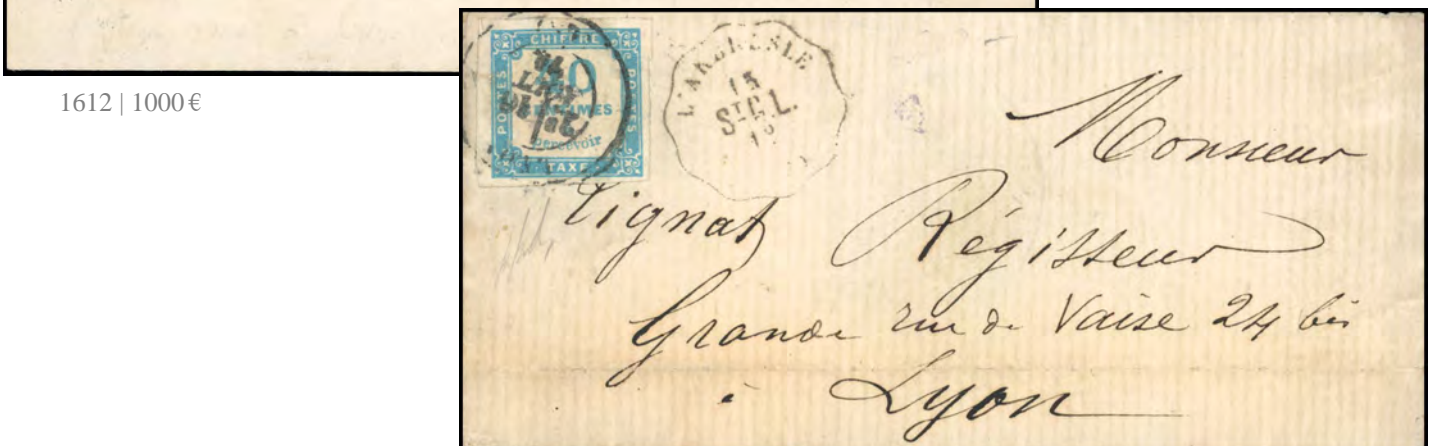 1612 | 1000 €
CHIFFRE
POSTES
POSTES
CENTIMES
percevoir
TAXE
L'ARBRESLE
ST G.L.
Monsieur
Tignat Régisseur
Grande rue de Vaise 24 bis
à Lyon